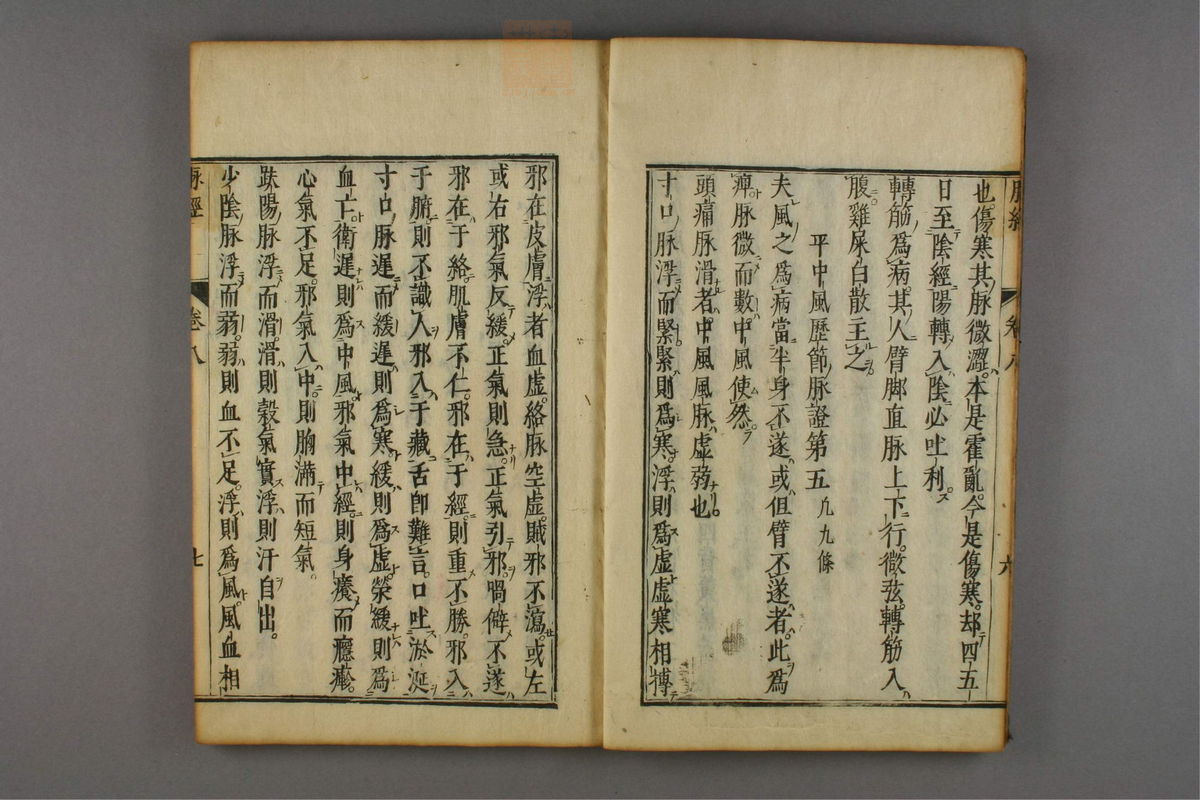 也傷寒其脉微澀本是霍亂今是傷寒却四五
日至陰經陽轉入陰必吐利
轉筋爲病其人臂脚直脉上下行微弦轉筋入
腹雞屎白散主之
平中風歷節脉證第五 凡九條
夫風之爲病當半身不遂或但臂不遂者此爲
痺脉微而數中風使然
頭痛脉滑者中風風脉虛弱也
寸口脉浮而緊緊則爲寒浮則爲虛虛寒相摶
六
邪在皮膚浮者血虛絡脉空虛賊邪不瀉或左
或右邪氣反緩正氣則急正氣引邪喎僻不遂
邪在于絡肌膚不仁邪在于經則重不勝邪入
于腑則不識人邪入于藏舌卽難言口吐淤涎
寸口脉遲而緩遲則爲寒緩則爲虛榮緩則爲
血亡衛遲則爲中風邪氣中經則身癢而癮瘮
心氣不足邪氣入中則胸滿而短氣
趺陽脉浮而滑滑則穀氣實浮則汗自出
少陰脉浮而弱弱則血不足浮則爲風風血相
脉經 卷八 七